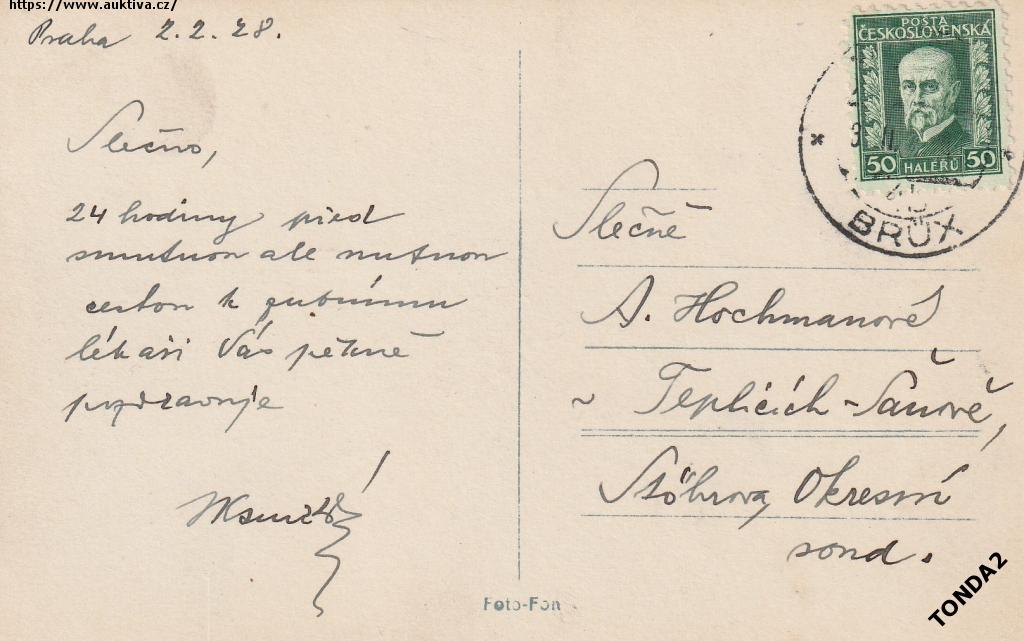 https://www.auktiva.cz/
Praha 2.2.28.
Slečno,
24 hodiny před
smutnou ale nutnou
cestou k zubnímu
lékaři Vás pěkně
pozdravuje
POSTA
ČESKOSLOVENSKÁ
50 HALÉŘŮ 50
3 II
BRÜX
Slečně
A. Hochmanové
v Teplicích-Šanově,
Okresní
soud.
Foto-Fon
TONDA2